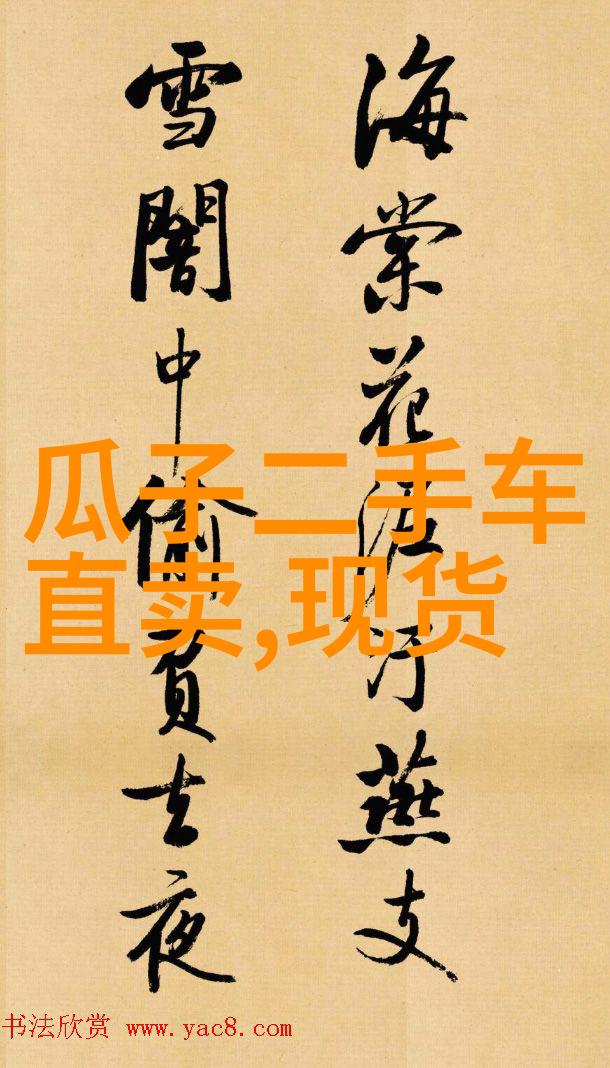 海棠花泥汙燕支
雪闇中偷負去夜
瓜子二手车
直卖,现货
书法欣赏 www.yac8.com